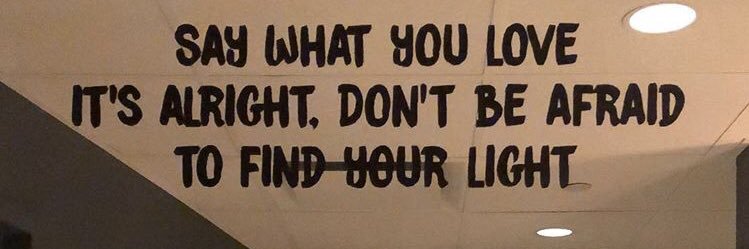 SAY WHAT YOU LOVE
IT'S ALRIGHT, DON'T BE AFRAID
TO FIND YOUR LIGHT